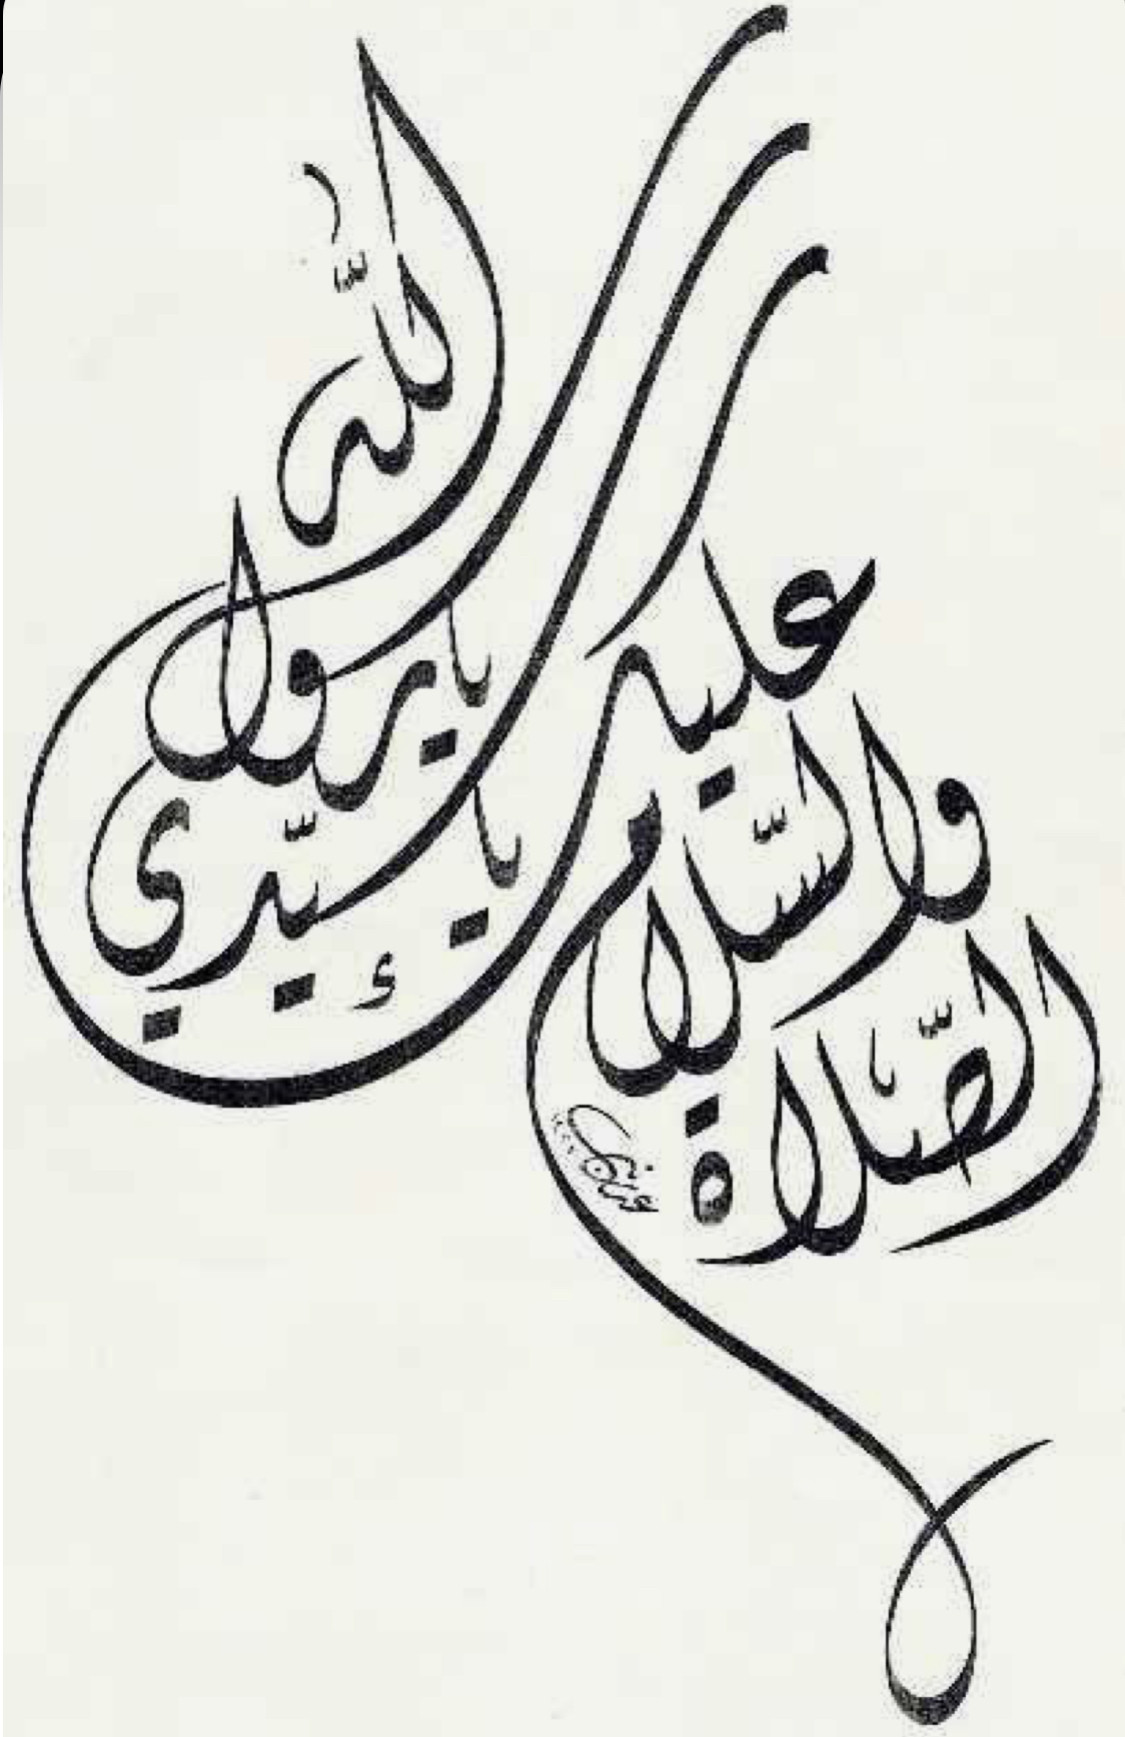 الصّلاة
والسّلام
عليك
يا سيّدي
يا رسول
اللّه